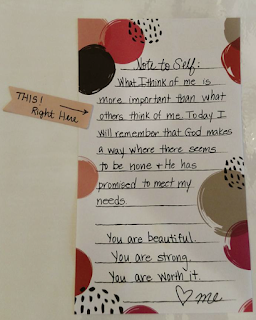 Note to Self:
What I think of me is
more important than what
others think of me. Today I
will remember that God makes
a way where there seems
to be none & He has
promised to meet my
needs.
You are beautiful.
You are strong.
You are worth it.
♡ me
THIS!
Right Here